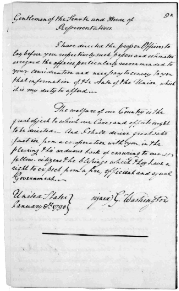 Gentlemen of the Senate and House of
Representatives
I have directed the proper Officers to
lay before you respectively such papers and estimates
as regard the affairs particularly recommended to
your consideration and necessary to convey to you
that information of the state of the Union which
it is my duty to afford.
The welfare of our Country is the
great object to which our Cares and efforts ought
to be directed. And I shall derive great satis
faction from a co-operation with you, in the
pleasing tho arduous task of ensuring to our
fellow citizens the blessings which they have a
right to expect from a free, efficient and equal
Government.
United States
January 8th 1790
G. Washington